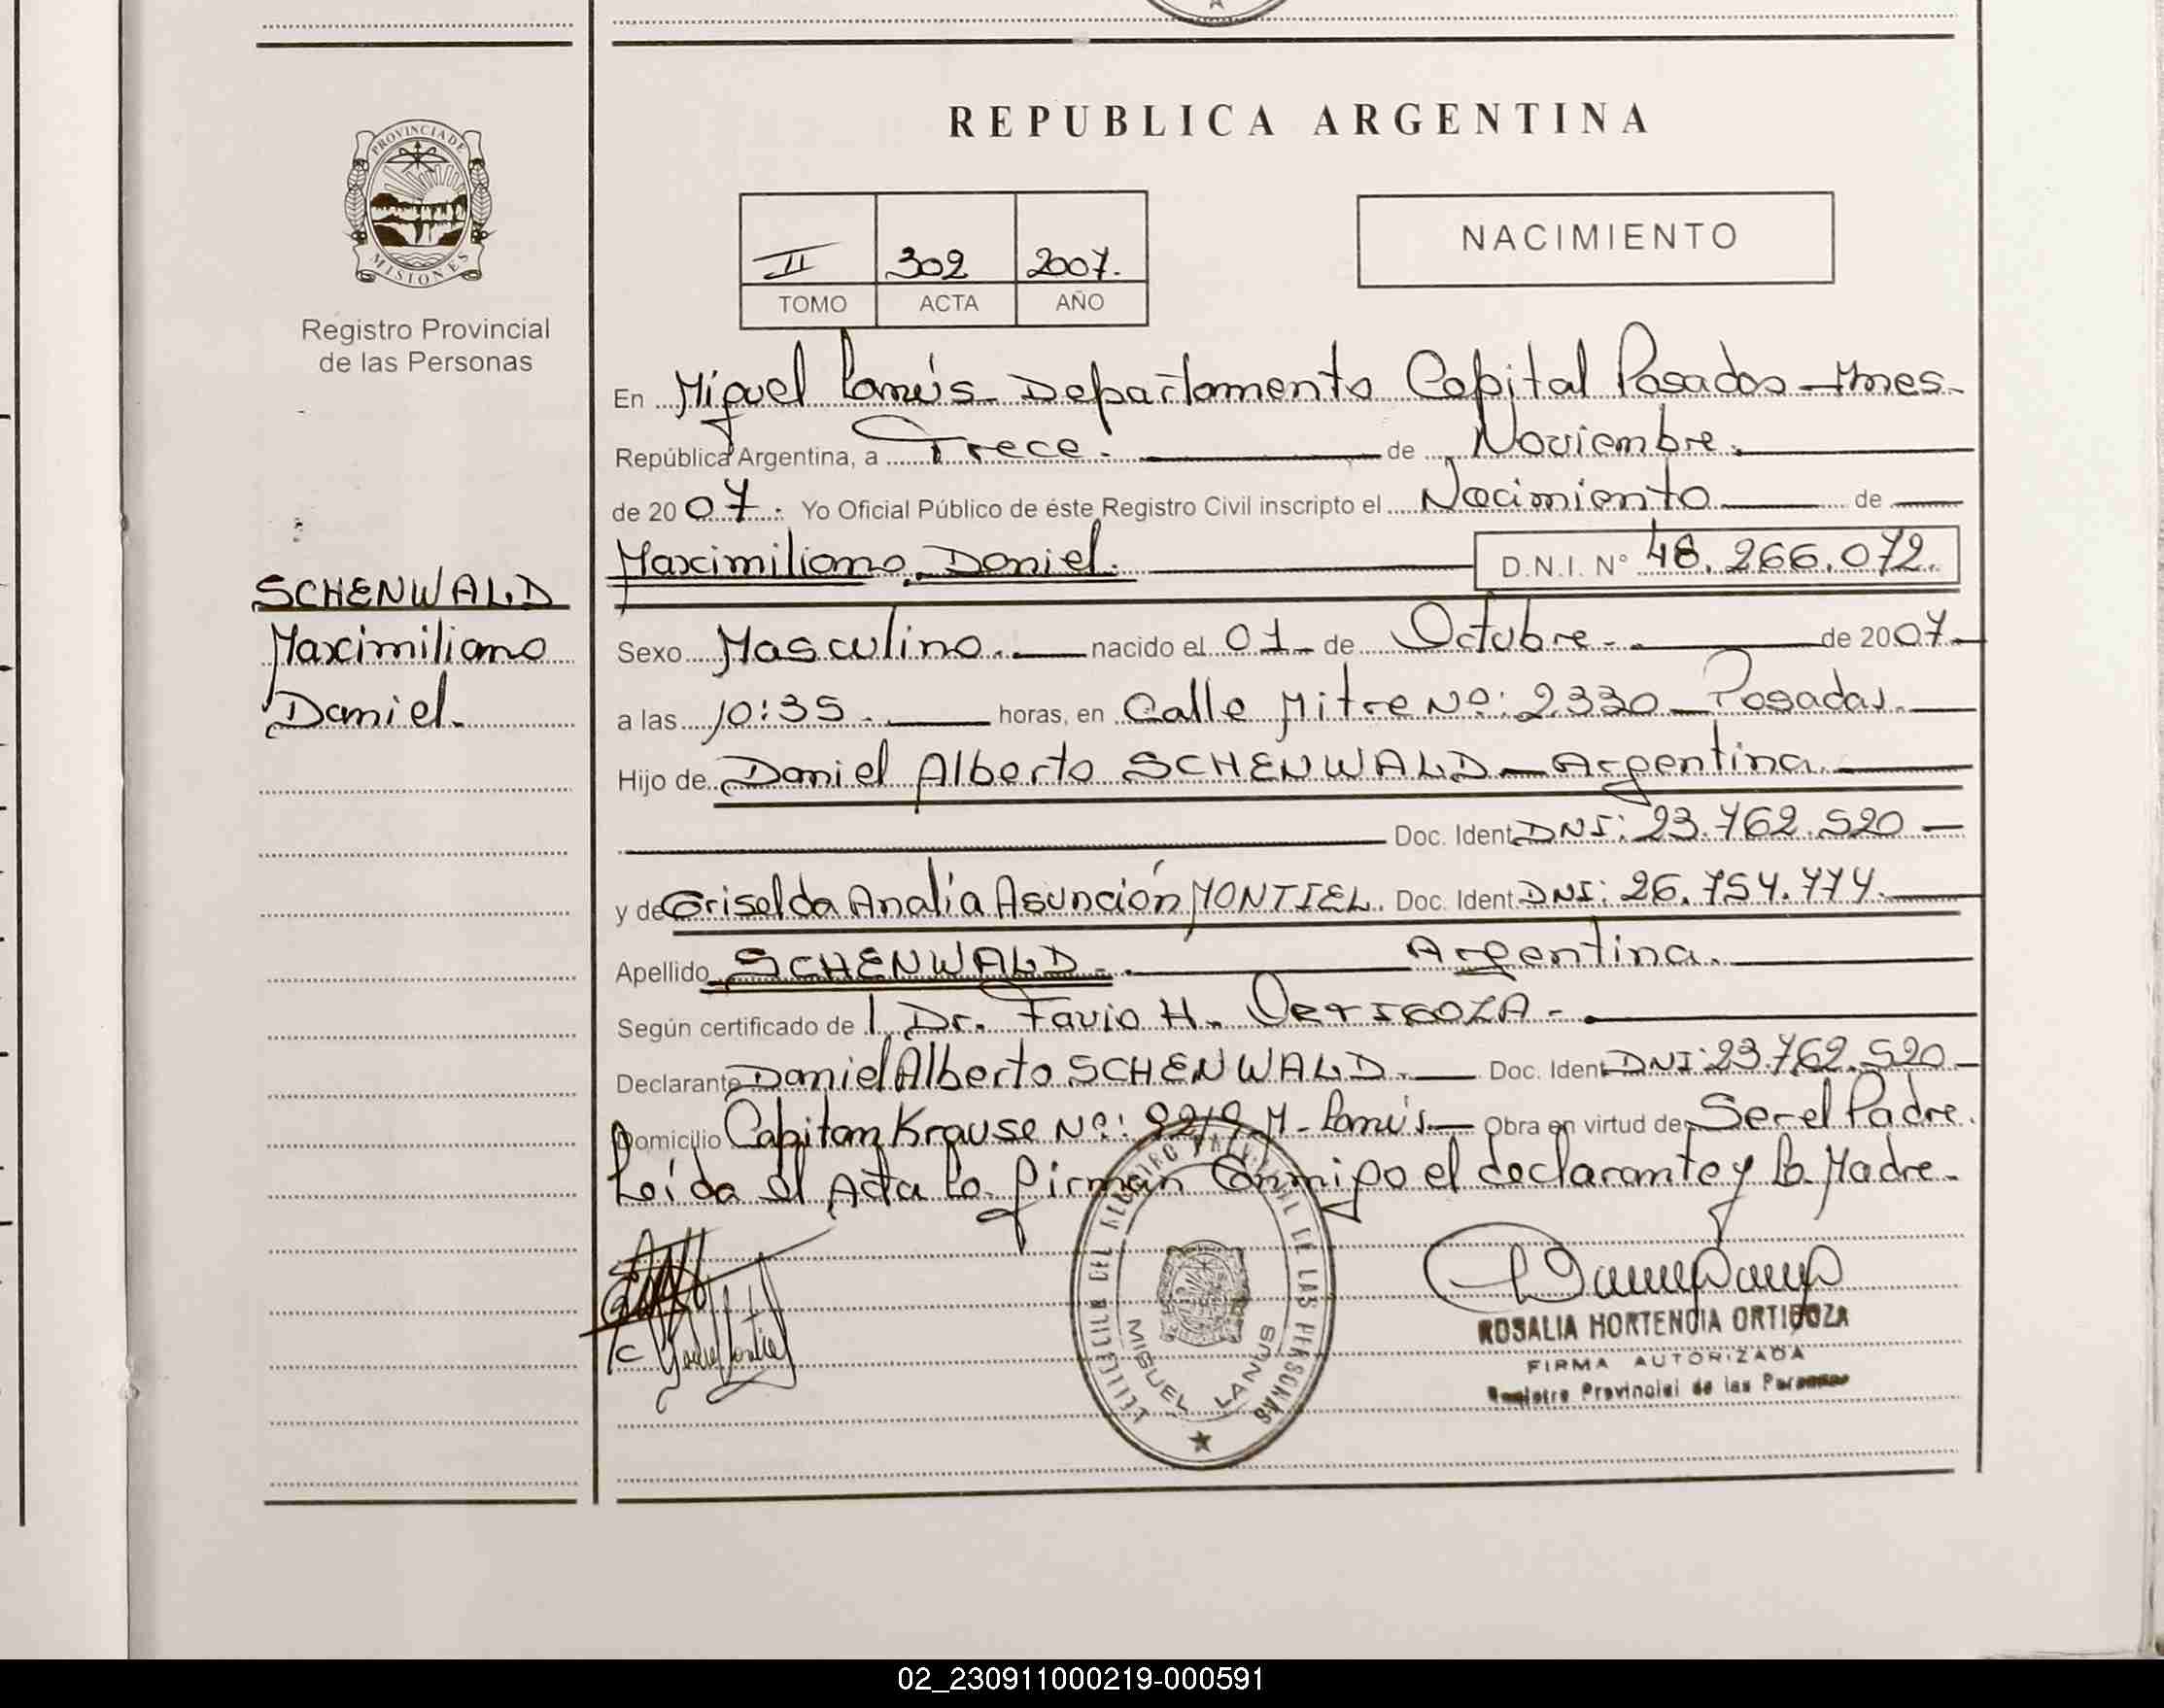 REPUBLICA ARGENTINA
PROVINCIA DE
MISIONES
Registro Provincial
de las Personas
II 302 2007.
TOMO ACTA AÑO
NACIMIENTO
En Miguel Lanús - Departamento Capital Posadas - Mnes -
República Argentina, a Trece. de Noviembre.
de 2007. Yo Oficial Público de éste Registro Civil inscripto el Nacimiento de
Maximiliano Daniel. D.N.I. N° 48.266.072.
SCHENWALD
Maximiliano
Daniel.
Sexo Masculino. nacido el 01 - de Octubre - de 2007 -
a las 10:35. horas, en Calle Mitre Nº: 2330 - Posadas.
Hijo de Daniel Alberto SCHENWALD - Argentina.
Doc. Ident. DNI: 23.762.520 -
y de Griselda Analía Asunción MONTIEL. Doc. Ident. DNI: 26.754.774.
Apellido SCHENWALD - . Argentina.
Según certificado de Dr. Favio H. ORTIGOZA - .
Declarante Daniel Alberto SCHENWALD. - Doc. Ident. DNI: 23.762.520 -
Domicilio Capitan Krause Nº: 9219 M - Lanús. - Obra en virtud de Ser el Padre.
Leída el Acta la firman Conmigo el declarante y la Madre -
DEL REGISTRO PROVINCIAL DE LAS PERSONAS
MIGUEL LANUS
ROSALIA HORTENCIA ORTIGOZA
FIRMA AUTORIZADA
Registro Provincial de las Personas
02_230911000219-000591